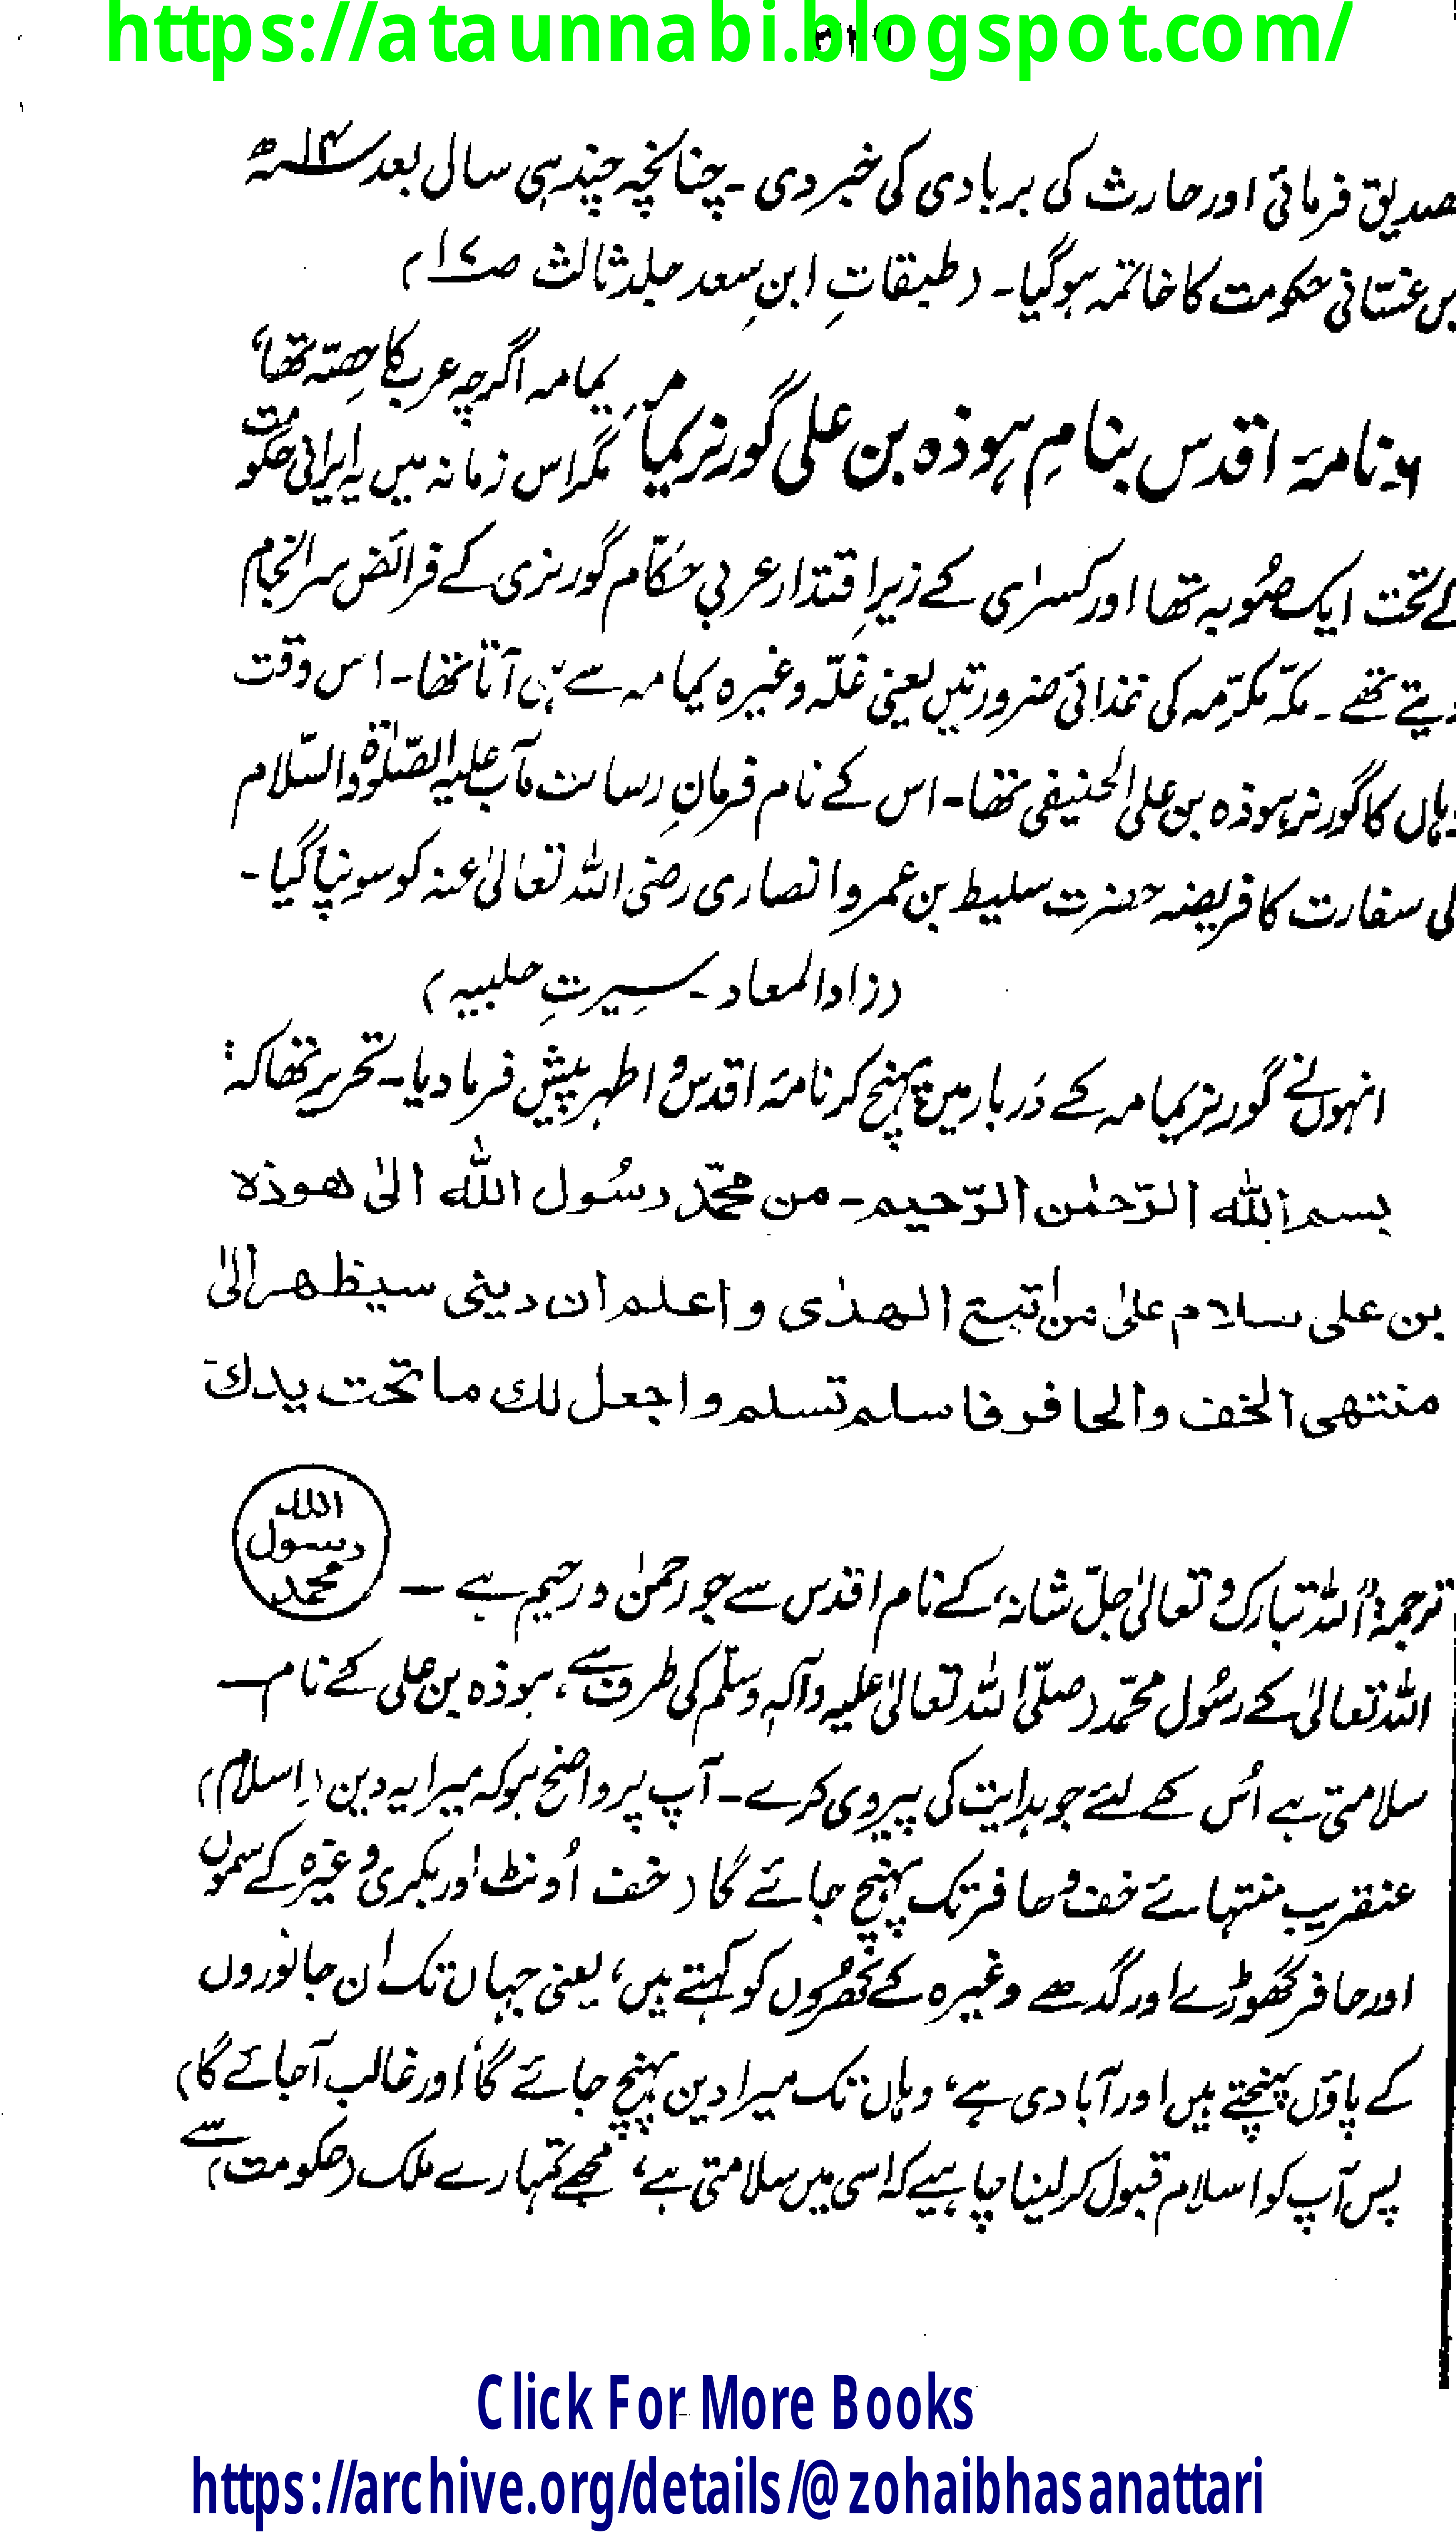 https://ataunnabi.blogspot.com/
صدیق فرمائی اور حارث کی بربادی کی خبر دی ۔ چنانچہ چند ہی سال بعد ۱۴ھ
غسّانی حکومت کا خاتمہ ہوگیا ۔ (طبقاتِ ابنِ سعد جلد ثالث ص۱۷)
۶۔ نامۂ اقدس بنامِ ہوذہ بن علی گورنر یمامہ
یمامہ اگرچہ عرب کا حِصّہ تھا،
مگر اس زمانہ میں یہ ایرانی حکومت
کے تحت ایک صُوبہ تھا اور کسرٰی کے زیرِ اقتدار عربی حکّام گورنری کے فرائض سرانجام
دیتے تھے ۔ مکّہ مکرّمہ کی غذائی ضرورتیں یعنی غلّہ وغیرہ یمامہ سے ہی آتا تھا ۔ اس وقت
وہاں کا گورنر ہوذہ بن علی الحنیفی تھا ۔ اس کے نام فرمانِ رسالت مآب علیہ الصّلوٰۃ والسّلام
کی سفارت کا فریضہ حضرت سلیط بن عمرو انصاری رضی اللہ تعالیٰ عنہ کو سونپا گیا ۔
(زاد المعاد ۔ سِیرتِ حلبیہ)
انہوں نے گورنر یمامہ کے دَربار میں پہنچ کر نامۂ اقدس و اطہر پیش فرما دیا ۔ تحریر تھا کہ :
بسم اللہ الرّحمٰن الرّحیم ۔ من محمّد رسُول اللہ الیٰ ھوذہ
بن علی سلام علیٰ من اتبع الھدٰی و اعلم ان دینی سیظھر الیٰ
منتھی الخف والحافر فاسلم تسلم و اجعل لك ما تحت یدك
اللہ
رسول
محمد
ترجمہ : "اللہ تبارک و تعالیٰ جلّ شانہ، کے نام اقدس سے جو رحمٰن و رحیم ہے —
اللہ تعالیٰ کے رسُول محمّد (صلّی اللہ تعالیٰ علیہ وآلہٖ وسلّم کی طرف سے، ہوذہ بن علی کے نام —
سلامتی ہے اُس کے لئے جو ہدایت کی پیروی کرے ۔ آپ پر واضح ہو کہ میرا یہ دین (اِسلام)
عنقریب منتہائے خف و حافر تک پہنچ جائے گا (خف اُونٹ اور بکری وغیرہ کے سموں
اور حافر گھوڑے اور گدھے وغیرہ کے کھُروں کو کہتے ہیں، یعنی جہاں تک ان جانوروں
کے پاؤں پہنچتے ہیں اور آبادی ہے، وہاں تک میرا دین پہنچ جائے گا اور غالب آجائے گا)
پس آپ کو اسلام قبول کر لینا چاہیے کہ اسی میں سلامتی ہے، مجھے تمہارے ملک (حکومت) سے
Click For More Books
https://archive.org/details/@zohaibhasanattari